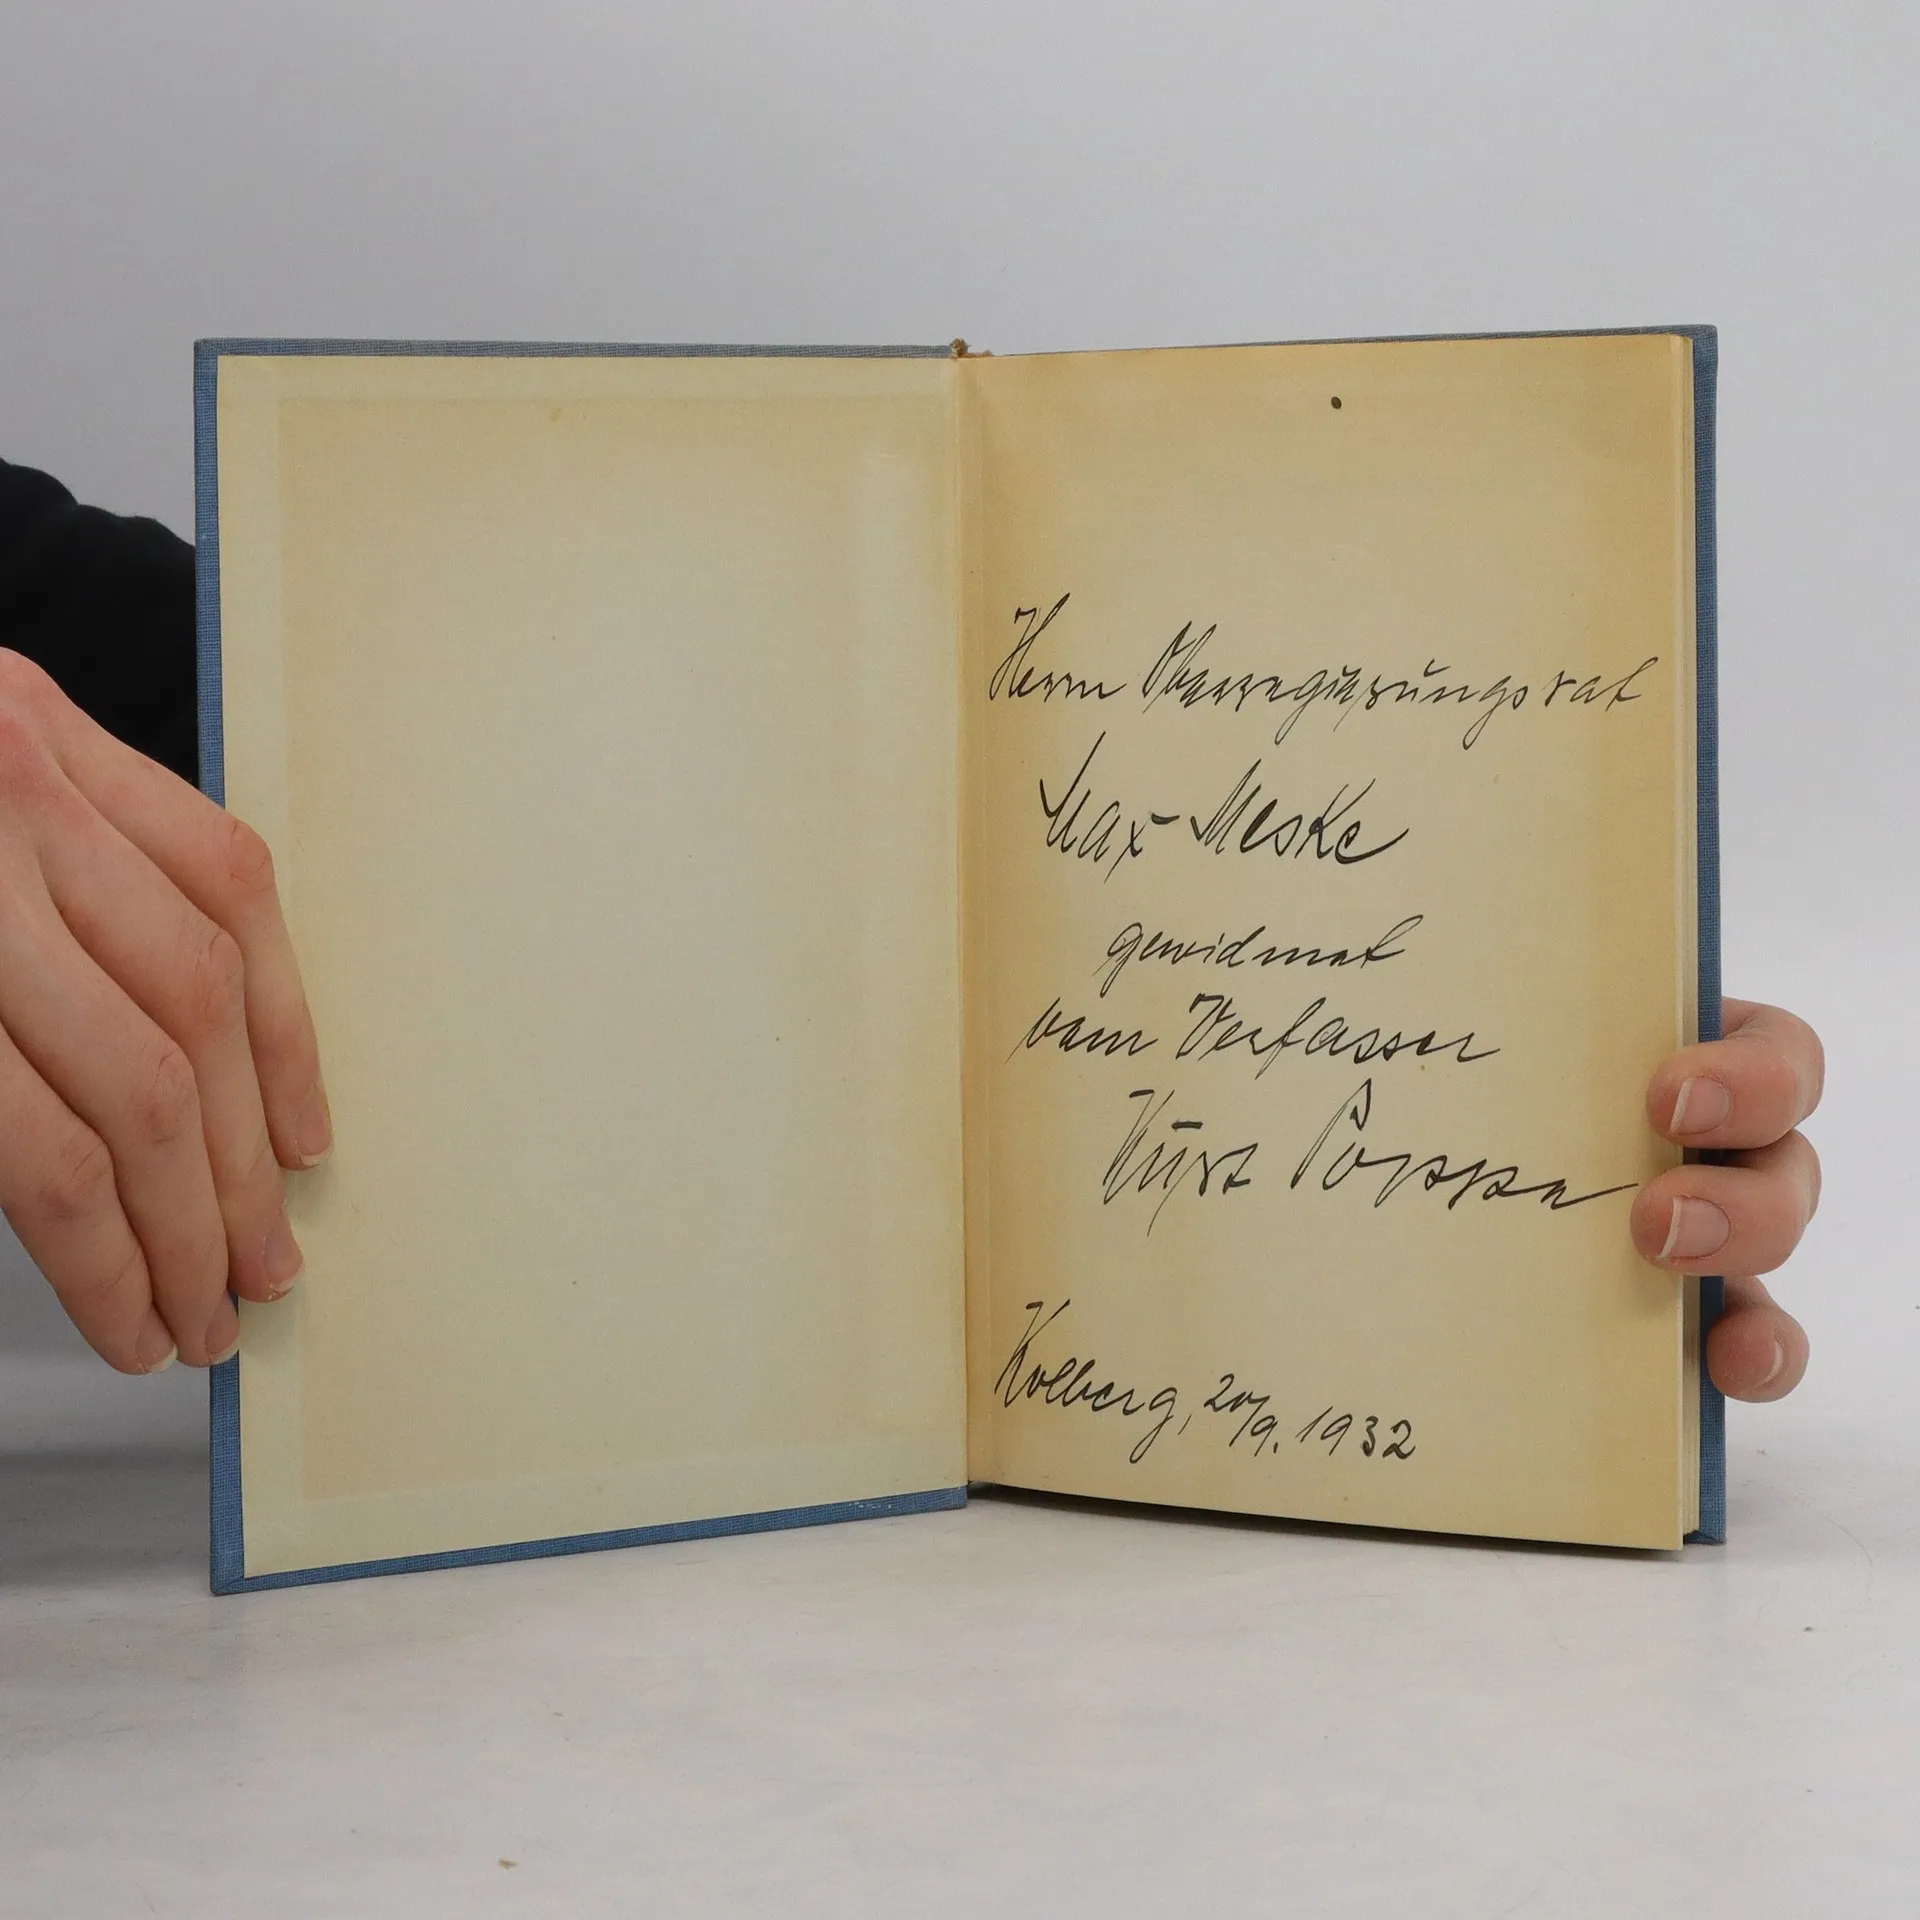 Herrn Oberregierungsrat
Max Meske
gewidmet
vom Verfasser
Kurt Poppe
Kolberg, 20/9. 1932